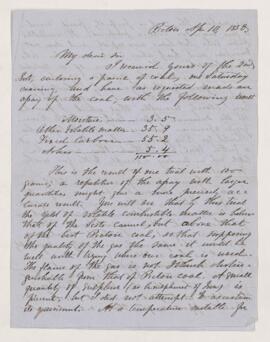 Pictou Ap 18, 1853.
My dear Sir
I received yours of the 2nd
Inst, enclosing a parcel of coal, on Saturday
evening, and have as requested made an
assay of the coal, with the following result
Moisture 3. 5
Other volatile matter 35. 9
Fixed Carbon 55. 2
Ashes 5. 4
100.00
This is the result of one trial with 100
grains; a repetition of the assay with larger
quantities might give a more precisely accurate
result. You will see that by this trial
the yield of volatile combustible matter is below
that of the Scots cannel, but above that
of the best Pictou coal, so that supposing
the quality of the gas the same it would be
well where our coal is used.
The flame of the gas is not
from that of Pictou coal. A small
quantity of Sulphur (as bisulphuret of Iron) is
present, but I did not attempt to ascertain
its quantity. As a comparative